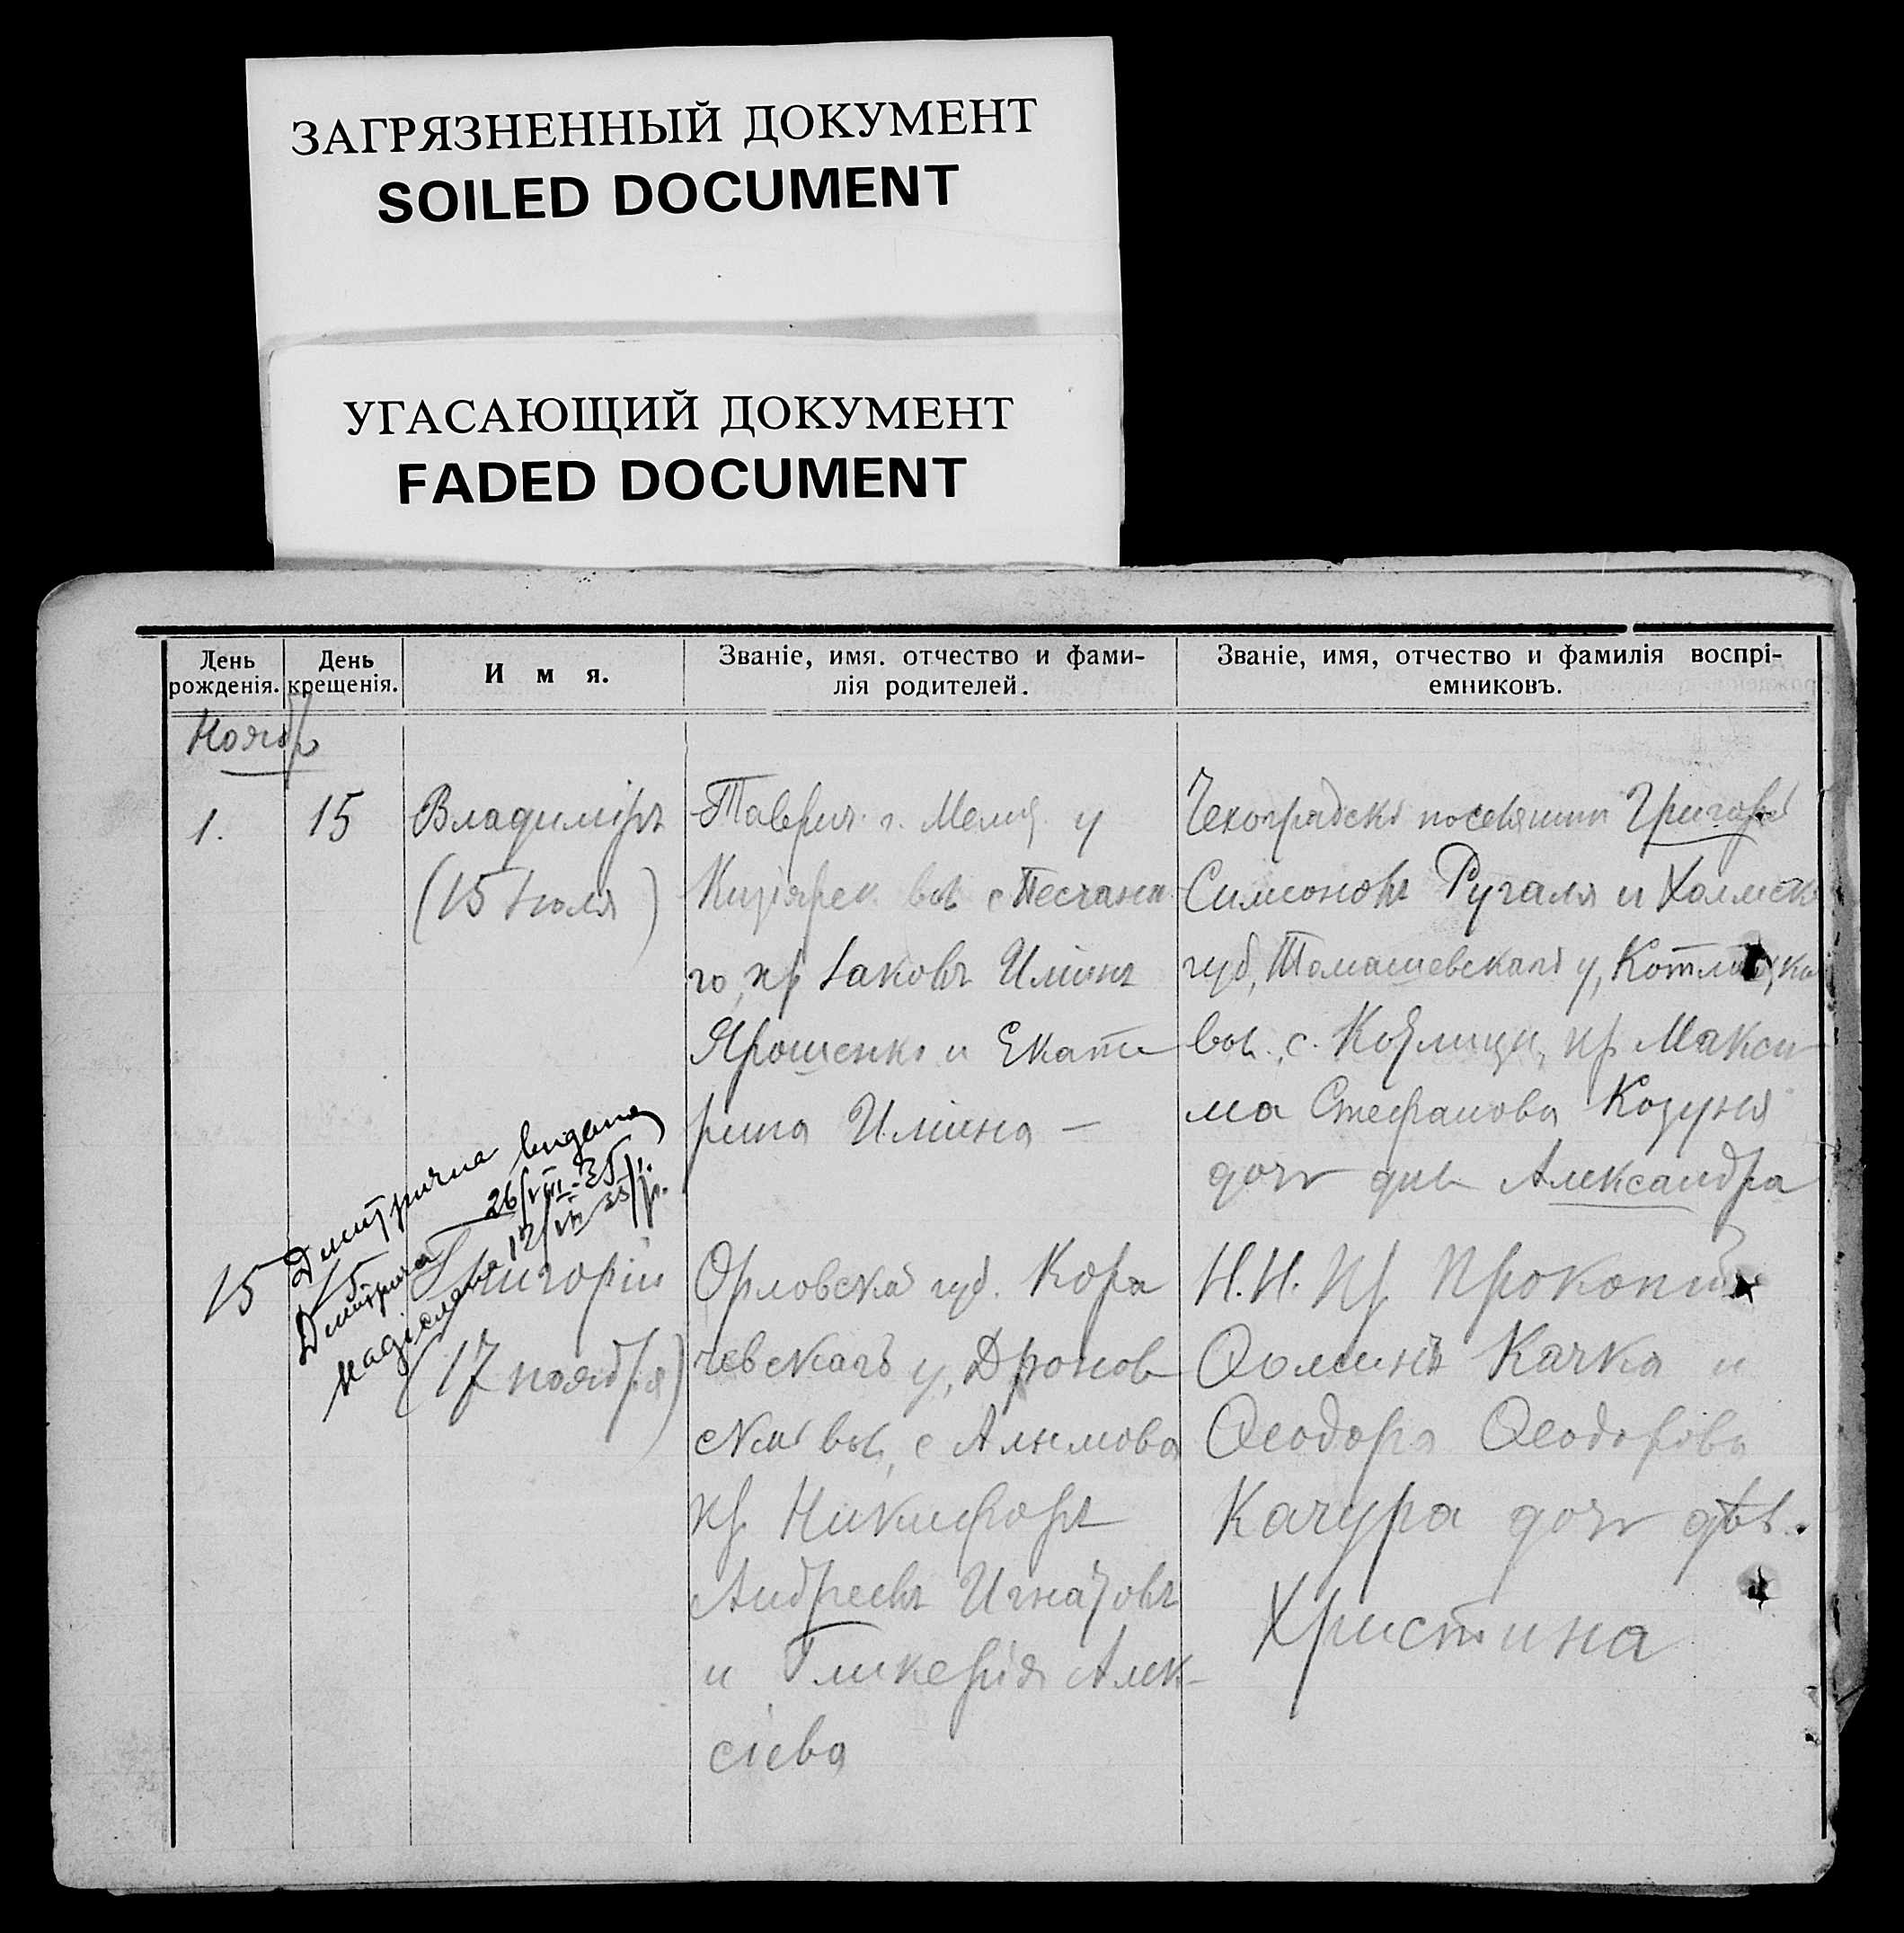 ЗАГРЯЗНЕННЫЙ ДОКУМЕНТ
SOILED DOCUMENT
УГАСАЮЩИЙ ДОКУМЕНТ
FADED DOCUMENT
День рожденія.
День крещенія.
И м я.
Званіе, имя. отчество и фами-
лія родителей.
Званіе, имя, отчество и фамилія воспрі-
емниковъ.
Ноябр
1.
15
Владиміръ
(15 Іюля)
Таврич. г. Мелит. у
вол с Песчана
го, кр Іаковъ
Ярошенко и Екате
рина
Чехоградскі поселянин Григорій
Симоновъ Ругаля и Холмск
губ, Томашевскаго у,
вол., с. кр Макси
ма Стефанова Козуня
доч дѣв Александра
26/VIII-35
15
15
Григорій
(17 ноября)
Орловской губ. Кара
чевскаго у, Дронов
ской вол, с Алымова
кр. Никифоръ
Андреевъ Игнатовъ
и Гликерія Алек-
сіева
Н.Н. кр. Прокопій
Ѳоминъ Качка и
Ѳеодора Ѳеодорова
Качура доч дѣв.
Христина